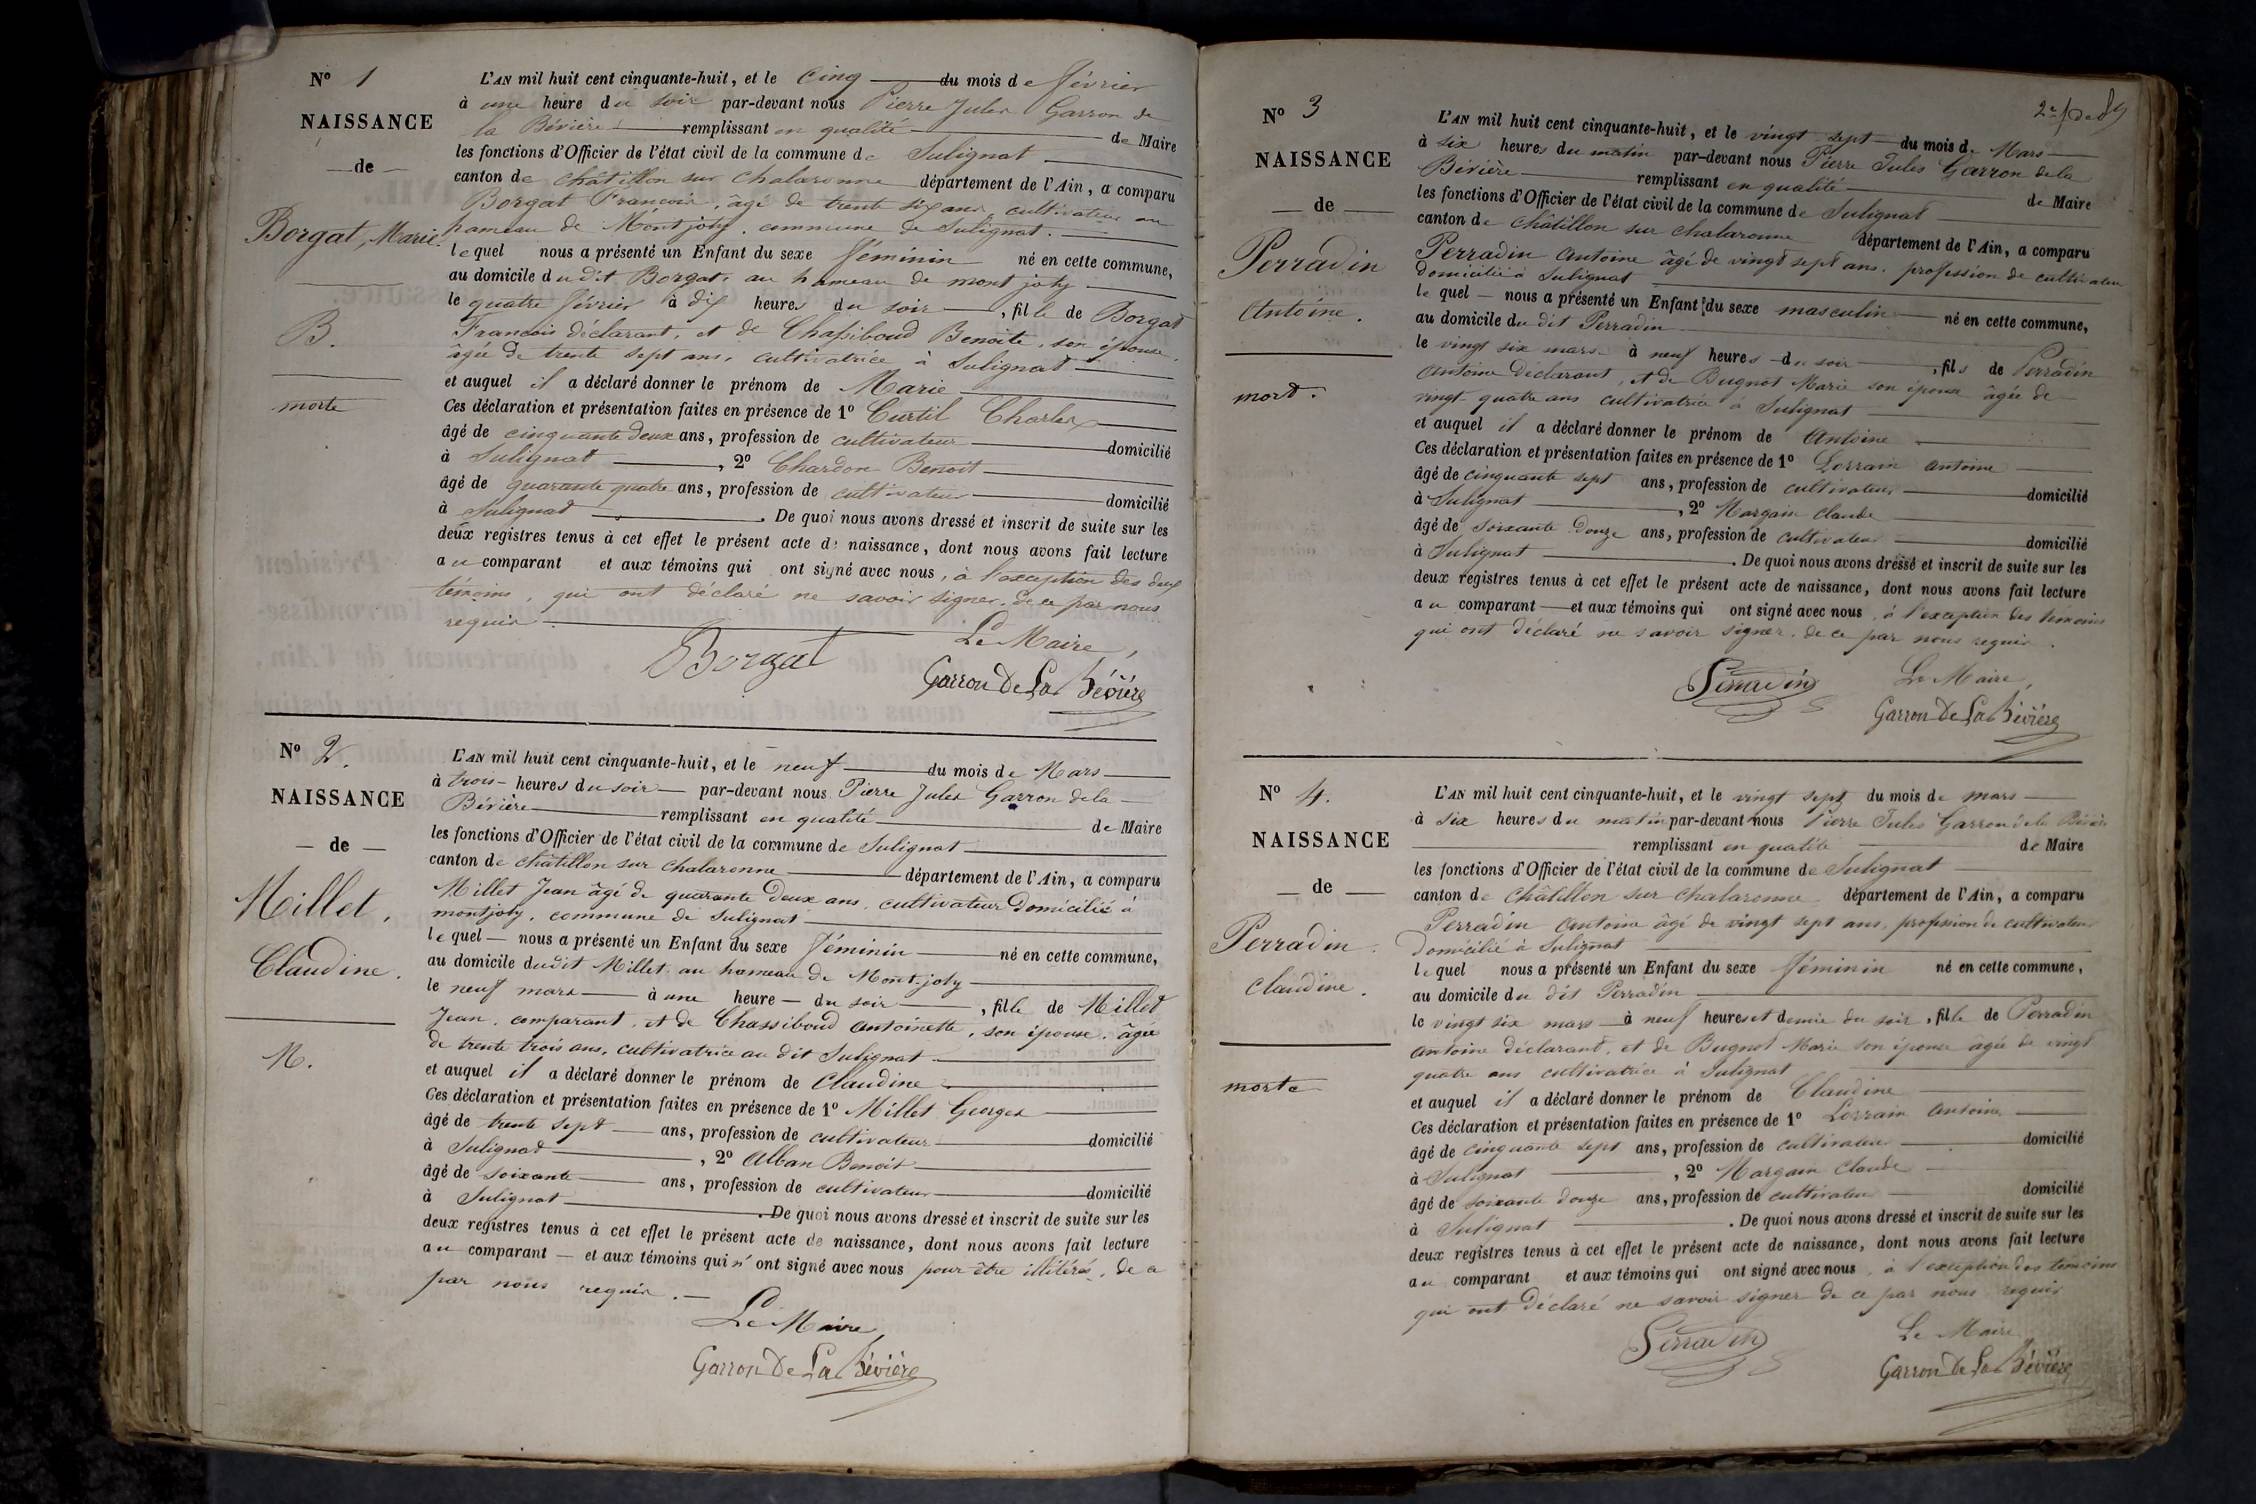 N° 1
NAISSANCE
de
Borgat, Marie.
B.
morte
L'AN mil huit cent cinquante-huit, et le cinq du mois de février
à une heure du soir par-devant nous Pierre Jules Garron de
la Bévière remplissant en qualité de Maire
les fonctions d'Officier de l'état civil de la commune de Sulignat
canton de châtillon sur chalaronne département de l'Ain, a comparu
Borgat François, âgé de trente six ans, cultivateur au
hameau de Montjoly, commune de Sulignat.
lequel nous a présenté un Enfant du sexe féminin né en cette commune,
au domicile du dit Borgat, au hameau de mont joly
le quatre février à dix heures du soir, fille de Borgat
François déclarant, et de Chassiboud Benoite, son épouse,
âgée de trente sept ans, cultivatrice à Sulignat
et auquel il a déclaré donner le prénom de Marie
Ces déclaration et présentation faites en présence de 1° Curtil Charles
âgé de cinquante deux ans, profession de cultivateur domicilié
à Sulignat, 2° Chardon Benoit
âgé de quarante quatre ans, profession de cultivateur domicilié
à Sulignat. De quoi nous avons dressé et inscrit de suite sur les
deux registres tenus à cet effet le présent acte de naissance, dont nous avons fait lecture
au comparant et aux témoins qui ont signé avec nous, à l'exception des deux
témoins, qui ont déclaré ne savoir signer, de ce par nous
requis
Le Maire,
Borgat
Garron De La Bévière
N° 2.
NAISSANCE
de
Millet,
Claudine.
M.
L'AN mil huit cent cinquante-huit, et le neuf du mois de Mars
à trois heures du soir par-devant nous Pierre Jules Garron de la
Bévière remplissant en qualité de Maire
les fonctions d'Officier de l'état civil de la commune de Sulignat
canton de châtillon sur chalaronne département de l'Ain, a comparu
Millet Jean âgé de quarante deux ans, cultivateur domicilié à
montjoly, commune de Sulignat
lequel nous a présenté un Enfant du sexe féminin né en cette commune,
au domicile dudit Millet au hameau de Mont-joly
le neuf mars à une heure du soir, fille de Millet
Jean, comparant, et de Chassiboud Antoinette, son épouse, âgée
de trente trois ans, cultivatrice au dit Sulignat
et auquel il a déclaré donner le prénom de Claudine
Ces déclaration et présentation faites en présence de 1° Millet Georges
âgé de trente sept ans, profession de cultivateur domicilié
à Sulignat, 2° Alban Benoit
âgé de soixante ans, profession de cultivateur domicilié
à Sulignat. De quoi nous avons dressé et inscrit de suite sur les
deux registres tenus à cet effet le présent acte de naissance, dont nous avons fait lecture
au comparant et aux témoins qui n'ont signé avec nous pour être illitérés, de ce
par nous requis.
Le Maire,
Garron De La Bévière
N° 3
NAISSANCE
de
Perradin
Antoine.
mort.
L'AN mil huit cent cinquante-huit, et le vingt sept du mois de Mars
à six heures du matin par-devant nous Pierre Jules Garron de la
Bévière remplissant en qualité de Maire
les fonctions d'Officier de l'état civil de la commune de Sulignat
canton de Châtillon sur chalaronne département de l'Ain, a comparu
Perradin Antoine âgé de vingt sept ans, profession de cultivateur
domicilié à Sulignat
lequel nous a présenté un Enfant du sexe masculin né en cette commune,
au domicile du dit Perradin
le vingt six mars à neuf heures du soir, fils de Perradin
Antoine déclarant, et de Bugnot Marie son épouse âgée de
vingt quatre ans cultivatrice à Sulignat
et auquel il a déclaré donner le prénom de Antoine
Ces déclaration et présentation faites en présence de 1° Lorrain Antoine
âgé de cinquante sept ans, profession de cultivateur domicilié
à Sulignat, 2° Margain Claude
âgé de soixante douze ans, profession de cultivateur domicilié
à Sulignat. De quoi nous avons dressé et inscrit de suite sur les
deux registres tenus à cet effet le présent acte de naissance, dont nous avons fait lecture
au comparant et aux témoins qui ont signé avec nous, à l'exception des témoins
qui ont déclaré ne savoir signer, de ce par nous requis.
Perradin
Le Maire,
Garron De La Bévière
N° 4.
NAISSANCE
de
Perradin.
Claudine.
morte
L'AN mil huit cent cinquante-huit, et le vingt sept du mois de mars
à six heures du matin par-devant nous Pierre Jules Garron de la Bévière
remplissant en qualité de Maire
les fonctions d'Officier de l'état civil de la commune de Sulignat
canton de Châtillon sur chalaronne département de l'Ain, a comparu
Perradin Antoine âgé de vingt sept ans, profession de cultivateur
domicilié à Sulignat
lequel nous a présenté un Enfant du sexe féminin né en cette commune,
au domicile du dit Perradin
le vingt six mars à neuf heures et demie du soir, fille de Perradin
Antoine déclarant, et de Bugnot Marie son épouse âgée de vingt
quatre ans cultivatrice à Sulignat
et auquel il a déclaré donner le prénom de Claudine
Ces déclaration et présentation faites en présence de 1° Lorrain Antoine
âgé de cinquante sept ans, profession de cultivateur domicilié
à Sulignat, 2° Margain Claude
âgé de soixante douze ans, profession de cultivateur domicilié
à Sulignat. De quoi nous avons dressé et inscrit de suite sur les
deux registres tenus à cet effet le présent acte de naissance, dont nous avons fait lecture
au comparant et aux témoins qui ont signé avec nous, à l'exception des témoins
qui ont déclaré ne savoir signer de ce par nous requis
Perradin
Le Maire,
Garron De La Bévière